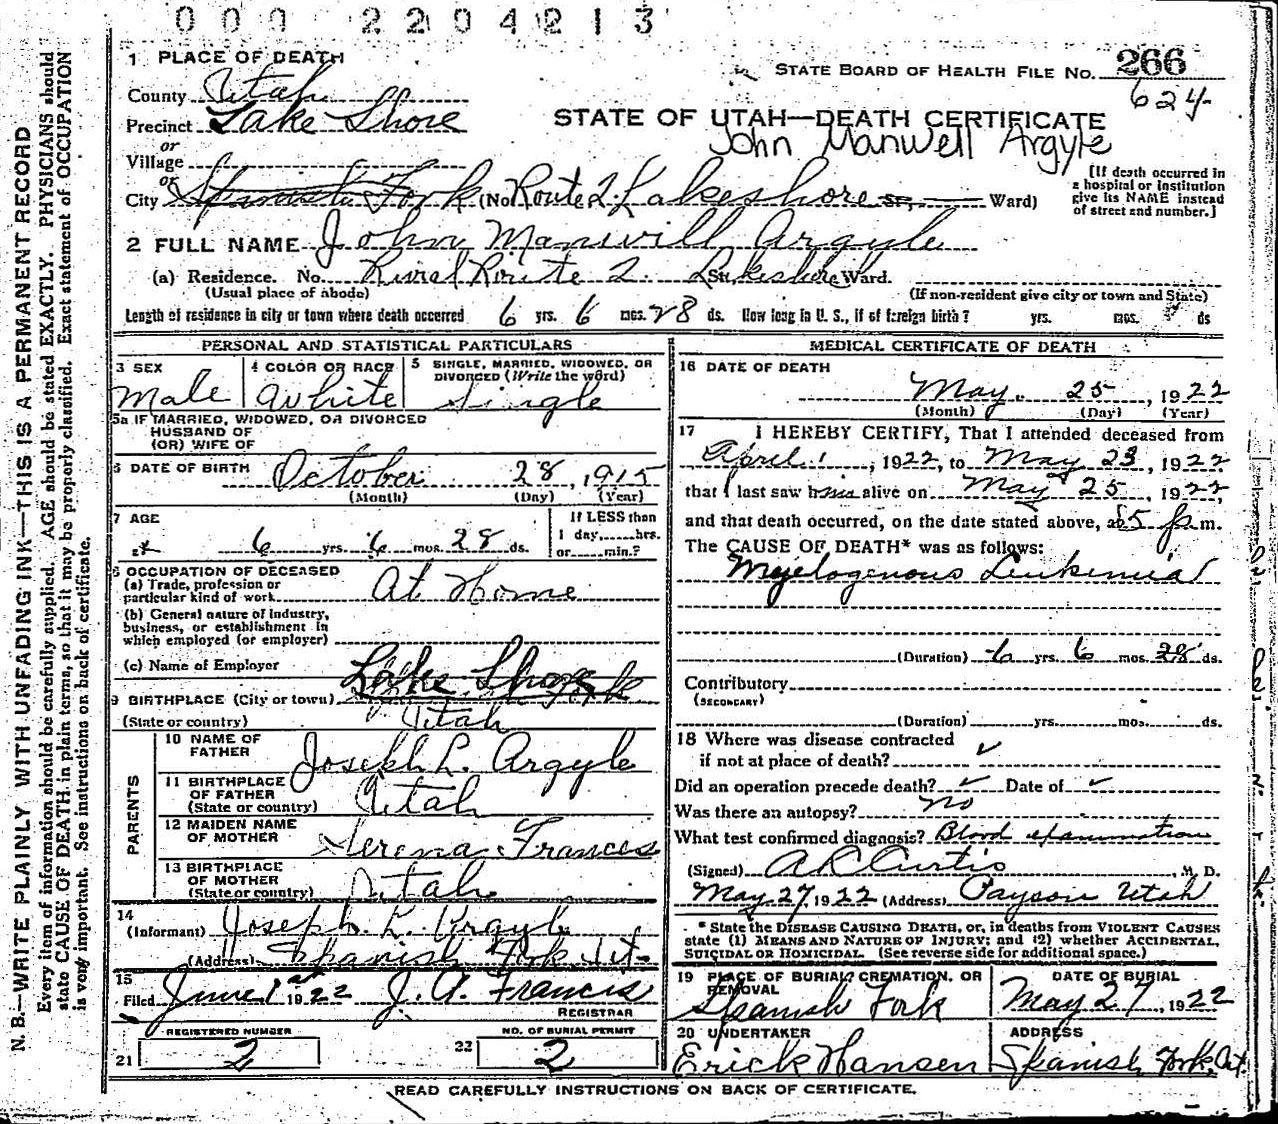 0 0 0 2 2 0 4 2 1 3
1 PLACE OF DEATH
STATE BOARD OF HEALTH FILE NO. 266
624
County Utah
Precinct Lake Shore
STATE OF UTAH—DEATH CERTIFICATE
John Manwell Argyle
or
Village
or
City Spanish Fork (No Route 2 Lakeshore St., Ward)
[If death occurred in
a hospital or institution
give its NAME instead
of street and number.]
2 FULL NAME John Manwill Argyle
(a) Residence. No. Rural Route 2. St. Lakeshore Ward.
(Usual place of abode) (If non-resident give city or town and State)
Length of residence in city or town where death occurred 6 yrs. 6 mos. 28 ds. How long in U. S., if of foreign birth? yrs. mos. ds
PERSONAL AND STATISTICAL PARTICULARS
3 SEX
Male
4 COLOR OR RACE
White
5 SINGLE, MARRIED, WIDOWED, OR
DIVORCED (Write the word)
Single
5a IF MARRIED, WIDOWED, OR DIVORCED
HUSBAND OF
(OR) WIFE OF
6 DATE OF BIRTH October 28, 1915
(Month) (Day) (Year)
7 AGE
6 yrs. 6 mos. 28 ds.
If LESS than
1 day, hrs.
or min.?
8 OCCUPATION OF DECEASED
(a) Trade, profession or
particular kind of work At Home
(b) General nature of industry,
business, or establishment in
which employed (or employer)
(c) Name of Employer
9 BIRTHPLACE (City or town) Lake Shore
(State or country) Utah
PARENTS
10 NAME OF
FATHER Joseph L. Argyle
11 BIRTHPLACE
OF FATHER
(State or country) Utah
12 MAIDEN NAME
OF MOTHER Serena Frances
13 BIRTHPLACE
OF MOTHER
(State or country) Utah
14
(Informant) Joseph L. Argyle
(Address) Spanish Fork Ut.
15
Filed June 1st 1922 J. A. Francis
REGISTRAR
REGISTERED NUMBER
21 2
NO. OF BURIAL PERMIT
22 2
MEDICAL CERTIFICATE OF DEATH
16 DATE OF DEATH
May 25, 1922
(Month) (Day) (Year)
17 I HEREBY CERTIFY, That I attended deceased from
April 1, 1922, to May 23, 1922
that I last saw him alive on May 25, 1922,
and that death occurred, on the date stated above, at 5 p m.
The CAUSE OF DEATH* was as follows:
Myelogenous Leukemia
(Duration) 6 yrs. 6 mos. 28 ds.
Contributory
(SECONDARY)
(Duration) yrs. mos. ds.
18 Where was disease contracted
if not at place of death? ✓
Did an operation precede death? ✓ Date of ✓
Was there an autopsy? no
What test confirmed diagnosis? Blood examination
(Signed) A R Curtis, M. D.
May 27, 1922 (Address) Payson Utah
* State the DISEASE CAUSING DEATH, or, in deaths from VIOLENT CAUSES
state (1) MEANS AND NATURE OF INJURY; and (2) whether ACCIDENTAL,
SUICIDAL OR HOMICIDAL. (See reverse side for additional space.)
19 PLACE OF BURIAL, CREMATION, OR
REMOVAL
Spanish Fork
DATE OF BURIAL
May 27, 1922
20 UNDERTAKER
Erick Hansen
ADDRESS
Spanish Fork, Ut.
READ CAREFULLY INSTRUCTIONS ON BACK OF CERTIFICATE.
N. B.—WRITE PLAINLY WITH UNFADING INK—THIS IS A PERMANENT RECORD
Every item of information should be carefully supplied. AGE should be stated EXACTLY. PHYSICIANS should
state CAUSE OF DEATH in plain terms, so that it may be properly classified. Exact statement of OCCUPATION
is very important. See instructions on back of certificate.